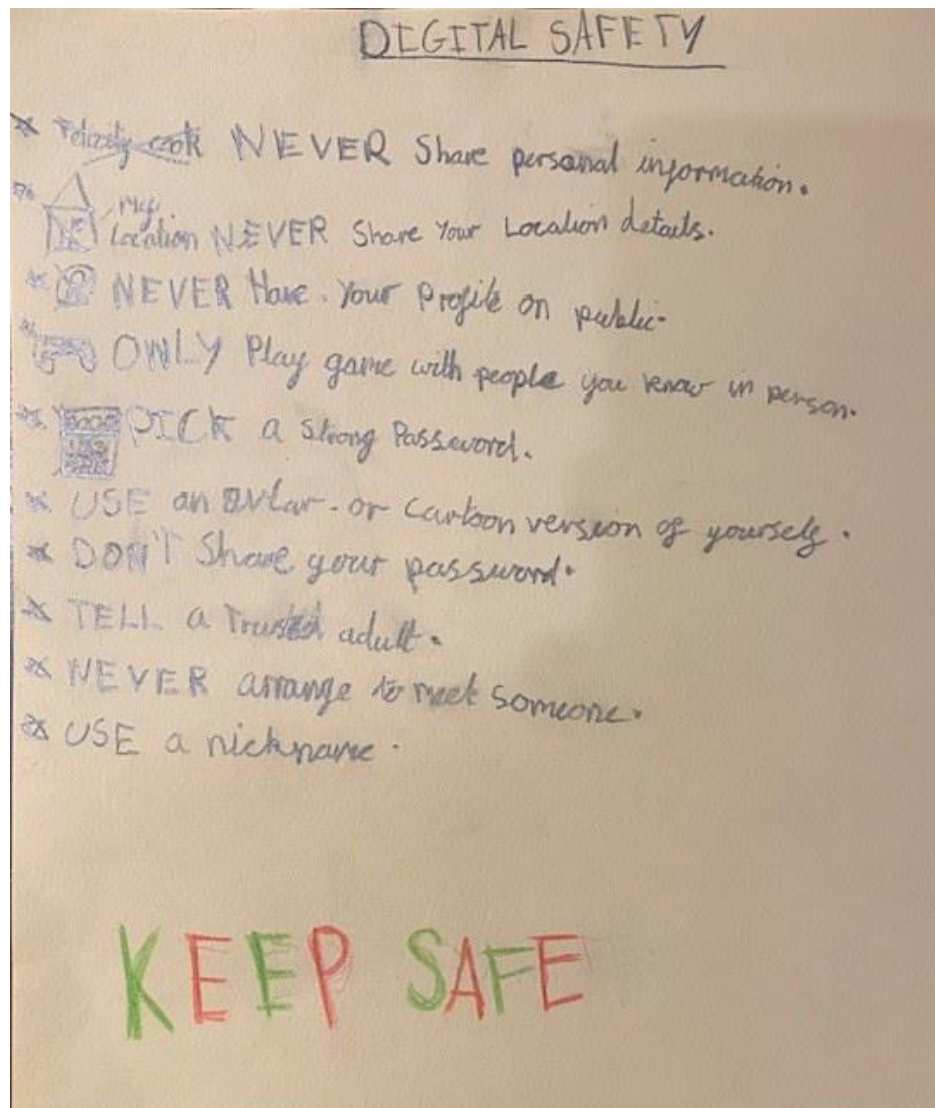 DIGITAL SAFETY
* Felicity cook NEVER Share personal information.
* my
Location NEVER Share Your Location details.
* NEVER Have. Your Profile on public.
* ONLY Play game with people you know in person.
* PICK a Strong Password.
* USE an avtar. or Cartoon version of yourself.
* DON'T Share your password.
* TELL a Trusted adult.
* NEVER arrange to meet Someone.
* USE a nickname.
KEEP SAFE